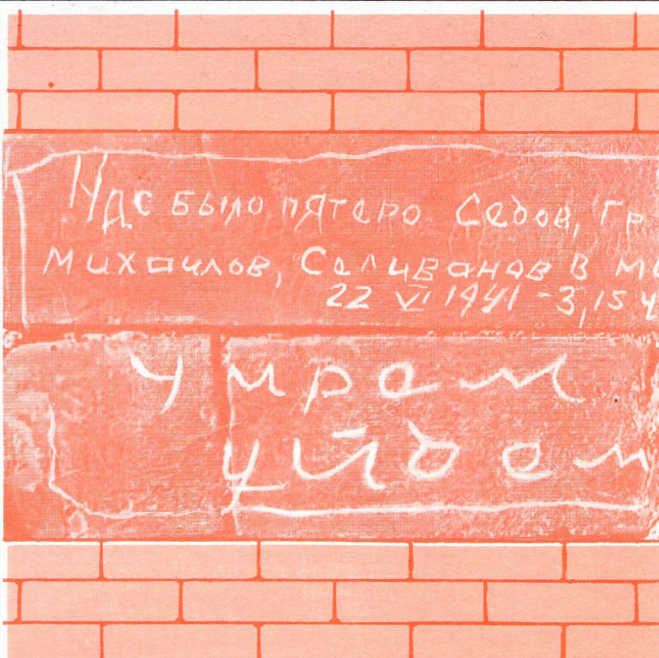 Нас было пятеро Седов, Гр
Михайлов, Селиванов В м
22 VI 1941 - 3,15 ч
умрем
уйдем